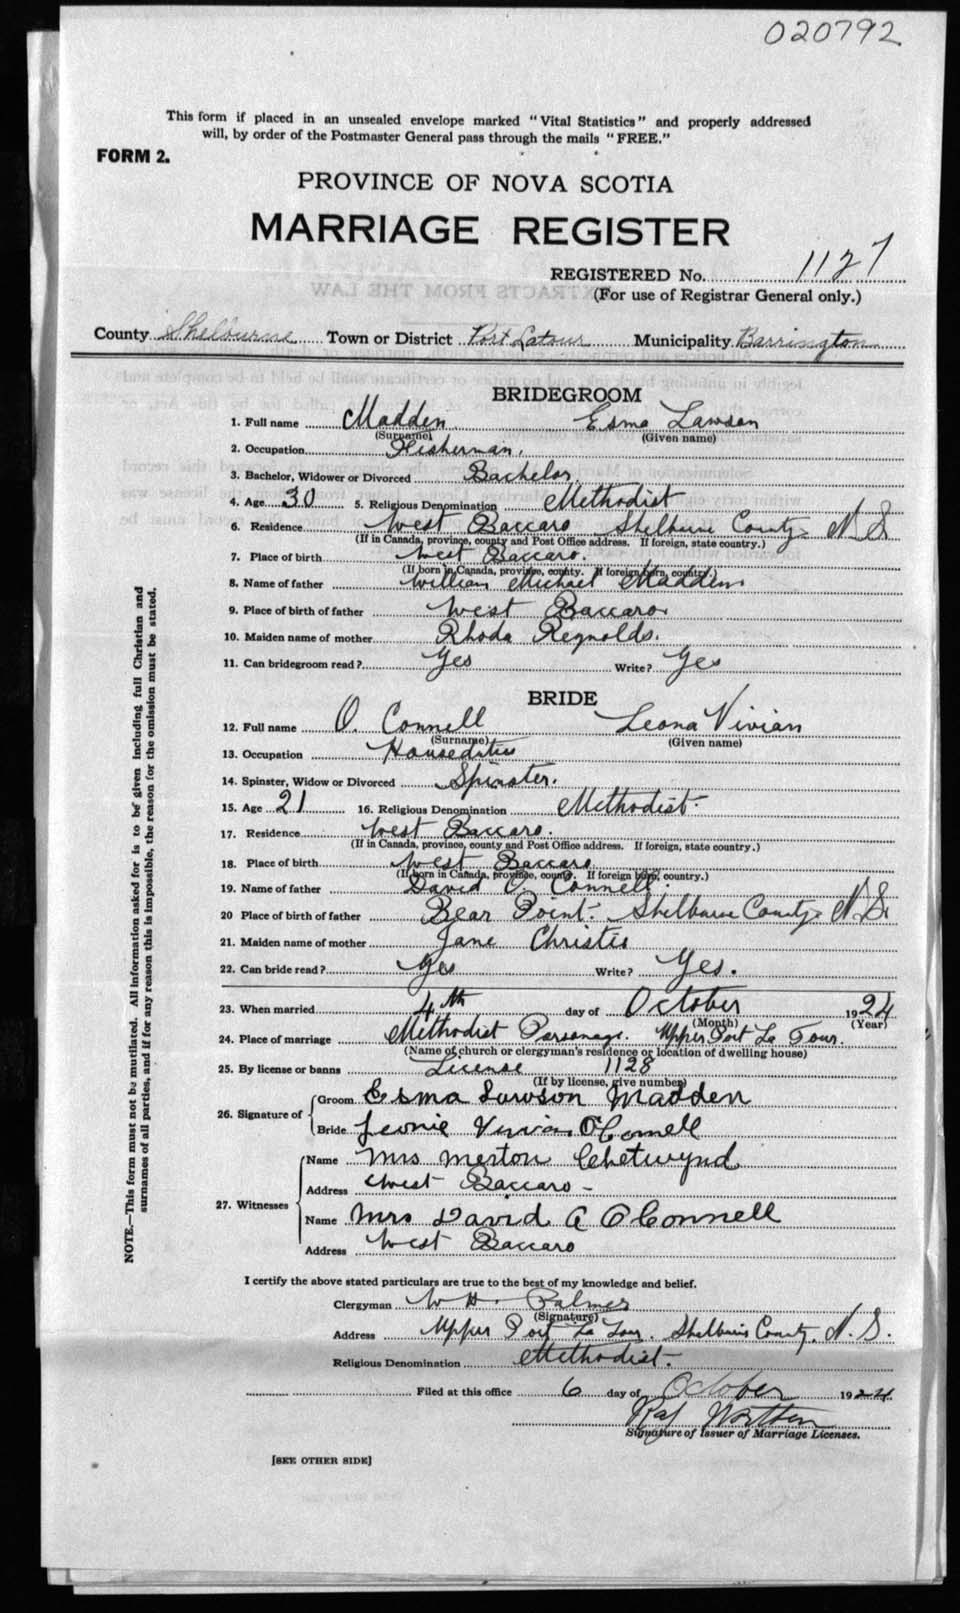 020792
This form if placed in an unsealed envelope marked "Vital Statistics" and properly addressed
will, by order of the Postmaster General pass through the mails "FREE."
FORM 2.
PROVINCE OF NOVA SCOTIA
MARRIAGE REGISTER
REGISTERED No. 1127
(For use of Registrar General only.)
County Shelburne Town or District Port Latour Municipality Barrington
BRIDEGROOM
1. Full name Madden Esmo Lawson
(Surname) (Given name)
2. Occupation Fisherman.
3. Bachelor, Widower or Divorced Bachelor.
4. Age 30 5. Religious Denomination Methodist
6. Residence West Baccaro Shelburne County N.S
(If in Canada, province, county and Post Office address. If foreign, state country.)
7. Place of birth West Baccaro.
(If born in Canada, province, county. If foreign born, country.)
8. Name of father William Michael Madden
9. Place of birth of father West Baccaro
10. Maiden name of mother Rhoda Reynolds.
11. Can bridegroom read? Yes Write? Yes
BRIDE
12. Full name O. Connell Leona Vivian
(Surname) (Given name)
13. Occupation Houseduties
14. Spinster, Widow or Divorced Spinster.
15. Age 21 16. Religious Denomination Methodist.
17. Residence West Baccaro.
(If in Canada, province, county and Post Office address. If foreign, state country.)
18. Place of birth West Baccaro
(If born in Canada, province, county. If foreign born, country.)
19. Name of father David O. Connell.
20 Place of birth of father Bear Point. Shelburne County N.S.
21. Maiden name of mother Jane Christie
22. Can bride read? Yes Write? Yes.
23. When married 4th day of October 1924
(Month) (Year)
24. Place of marriage Methodist Parsonage. Upper Port La Tour.
(Name of church or clergyman's residence or location of dwelling house)
25. By license or banns License 1128
(If by license, give number)
26. Signature of Groom Esma Lawson Madden
Bride Leonie Vivian O'Connell
27. Witnesses Name Mrs Merton Chetwynd
Address West Baccaro -
Name Mrs David A O'Connell
Address West Baccaro
I certify the above stated particulars are true to the best of my knowledge and belief.
Clergyman W H. Palmer
(Signature)
Address Upper Port La Tour. Shelburne County. N.S.
Religious Denomination Methodist.
Filed at this office 6 day of October 1924
Signature of Issuer of Marriage Licenses.
[SEE OTHER SIDE]
NOTE.—This form must not be mutilated. All information asked for is to be given including full Christian and
surnames of all parties, and if for any reason this is impossible, the reason for the omission must be stated.